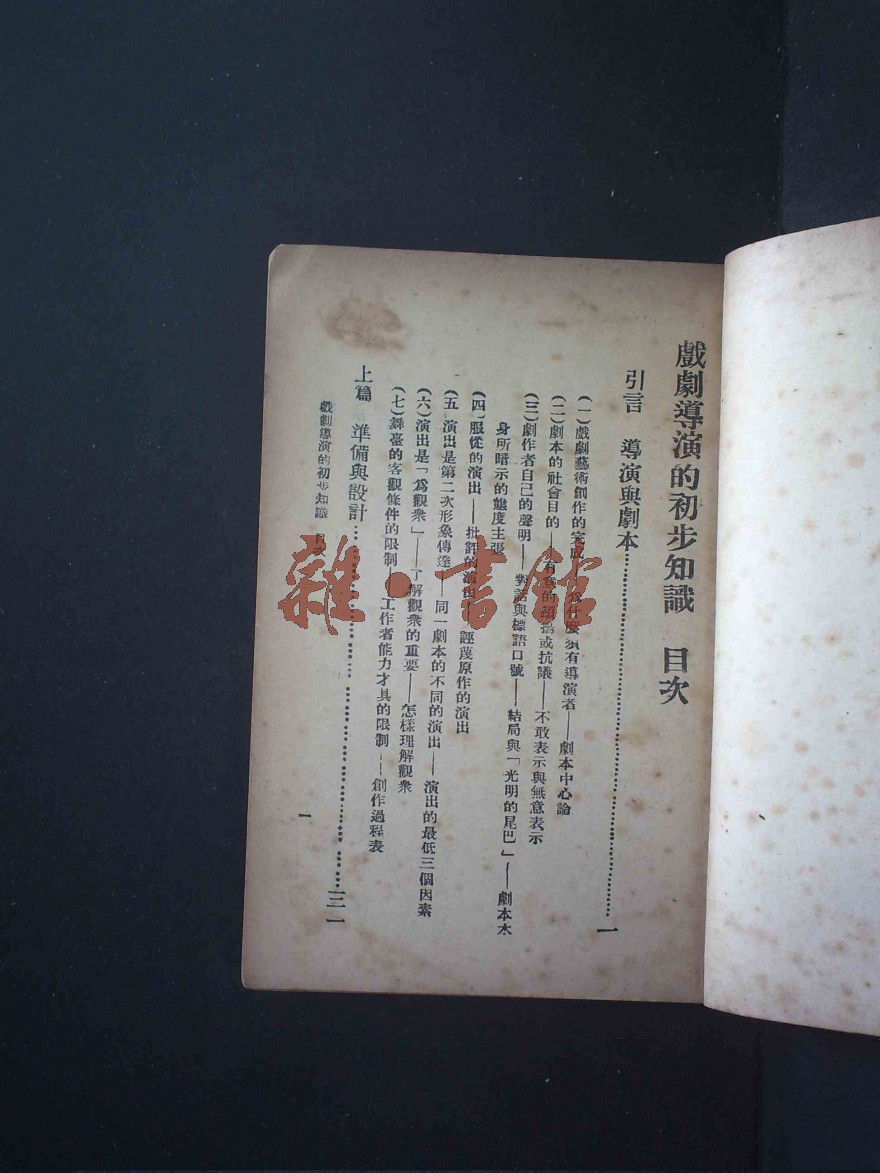 戲劇導演的初步知識　目次
引言　導演與劇本……一
(一)戲劇藝術創作的完成——為什麼須有導演者——劇本中心論
(二)劇本的社會目的——有意的頌揚或抗議——不敢表示與無意表示
(三)劇作者自己的聲明——對話與標語口號——結局與「光明的尾巴」——劇本本
身所暗示的態度主張
(四)服從的演出——批評的演出——誣蔑原作的演出
(五)演出是第二次形象傳達——同一劇本的不同的演出——演出的最低三個因素
(六)演出是「爲觀衆」——了解觀衆的重要——怎樣理解觀衆
(七)舞臺的客觀條件的限制——工作者能力才具的限制——創作過程表
上篇　準備與設計……三一
戲劇導演的初步知識　目次
一
雜·書館